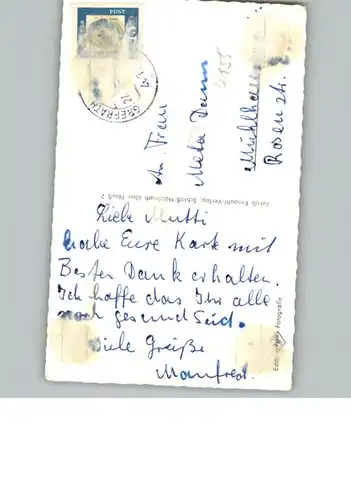 POST
GREFRATH
An Frau
Meta Damm
4155
Mühlhausen
Rosenstr.
Schloß
über Neuß 2
Liebe Mutti
habe Eure Karte mit
Besten Dank erhalten.
Ich hoffe das Ihr alle
noch gesund Seid.
Viele Grüße
Manfred.
Echte Fotografie